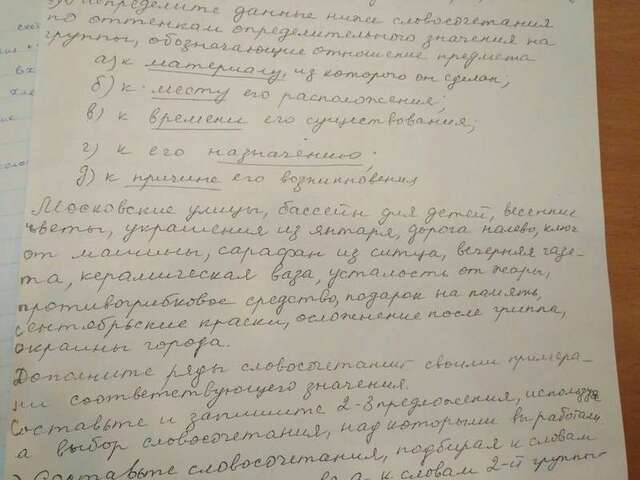 определите данные ниже словосочетания
по оттенкам определительного значения на
группы, обозначающие отношение предмета
а) к материалу, из которого он сделан;
б) к месту его расположения;
в) к времени его существования;
г) к его назначению;
д) к причине его возникновения
Московские улицы, бассейн для детей, весенние
цветы, украшения из янтаря, дорога налево, ключ
от машины, сарафан из ситца, вечерняя газе-
та, керамическая ваза, усталость от жары,
противогрибковое средство, подарок на память,
сентябрьские краски, осложнение после гриппа,
окраины города.
Дополните ряды словосочетаний своими примера-
ми соответствующего значения.
Составьте и запишите 2-3 предложения, используя
а выбор словосочетания, над которыми вы работали.
Составьте словосочетания, подбирая к словам
а- к словам 2-й группы